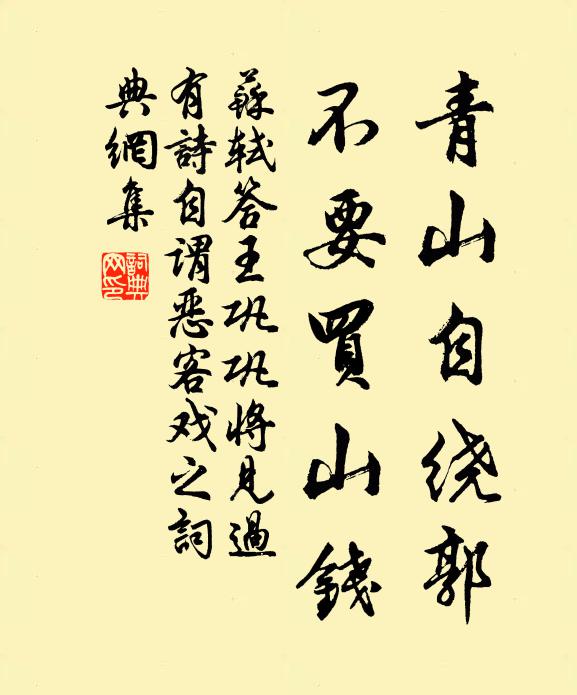 青山自绕郭
不要買山錢
蘇軾答王巩巩將见過
有詩自謂恶客戏之詞
典網集
詞典网印